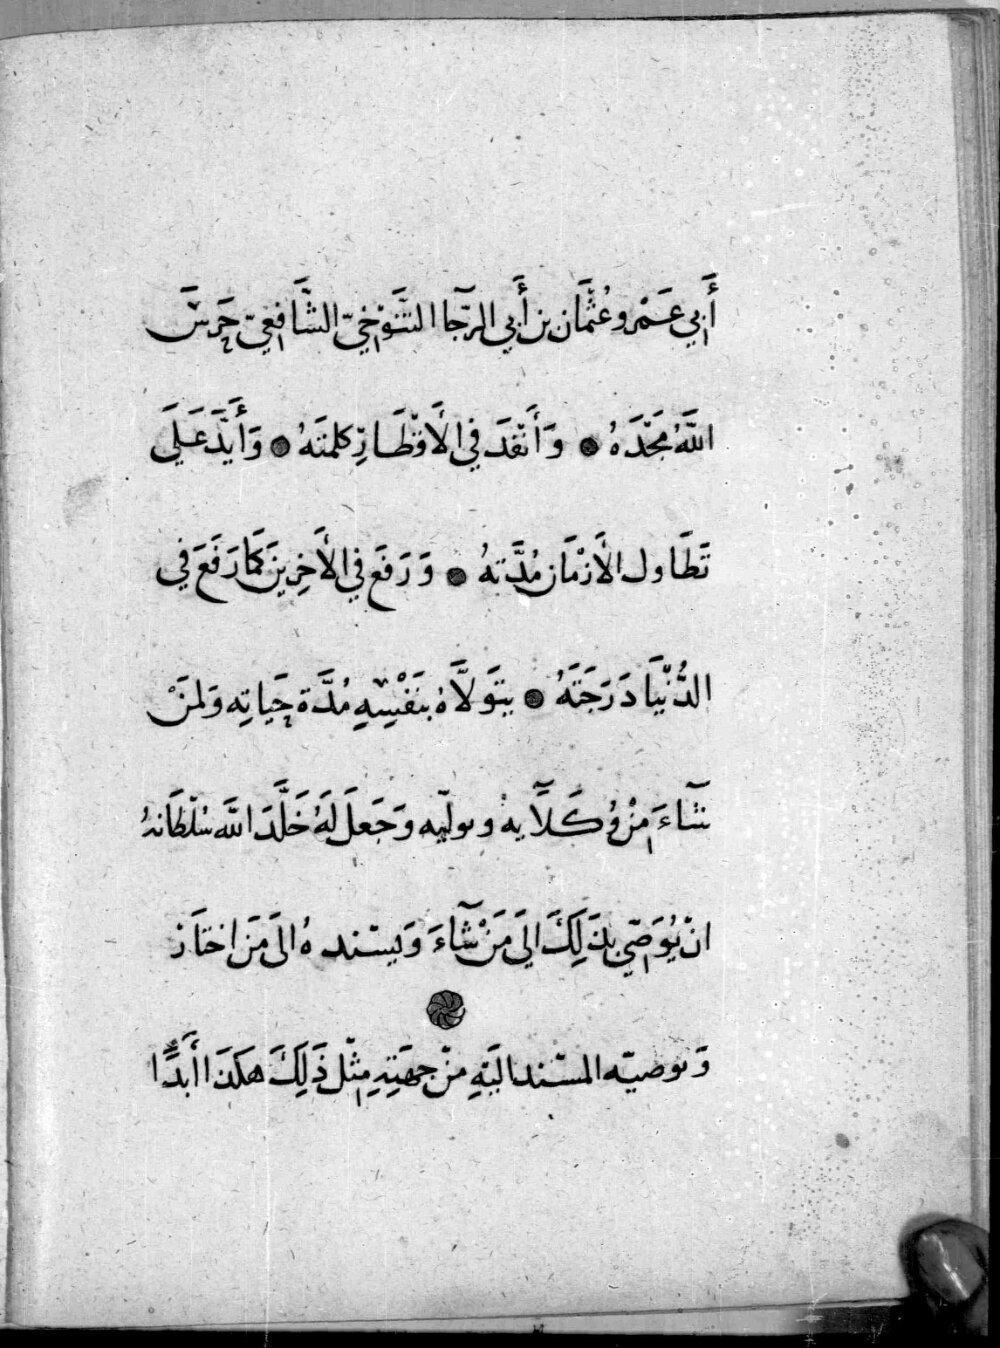 أَبِي عَمْرو عُثْمَان بن أَبِي الرَّجَآ التَّنَوْخِيّ الشَّافِعِيّ حَرَسَ
اللَّهُ مَجْدَهُ ۝ وَأَنْفَدَ فِي الأَقْطَارِ كلمتَهُ ۝ وَأَيَّدَ عَلَى
تَطَاول الأَزْمَان مُدَّتهُ ۝ وَرَفَعَ فِي الأَخِرِينَ كَمَا رَفَعَ فِي
الدُّنْيَا دَرَجَتَهُ ۝ يتَوَلَّاهُ بنَفْسِهِ مُدَّة حَيَاتِه وَلمَنْ
شَآءَ مِنْ وُكَلَآيِهِ وىولّيه وَجَعَلَ لَهُ خَلَّدَ اللَّه سُلْطَانهُ
انْ يُوَصِّي بذَلِكَ الَى مَنْ شَآءَ وَيسْندهُ الَى مَن اخْتَارَ
وَىوصيّه المسْند اليَهِ منْ جهَتِهِ مِثْل ذَلِكَ هكَذَا أَبَدًا